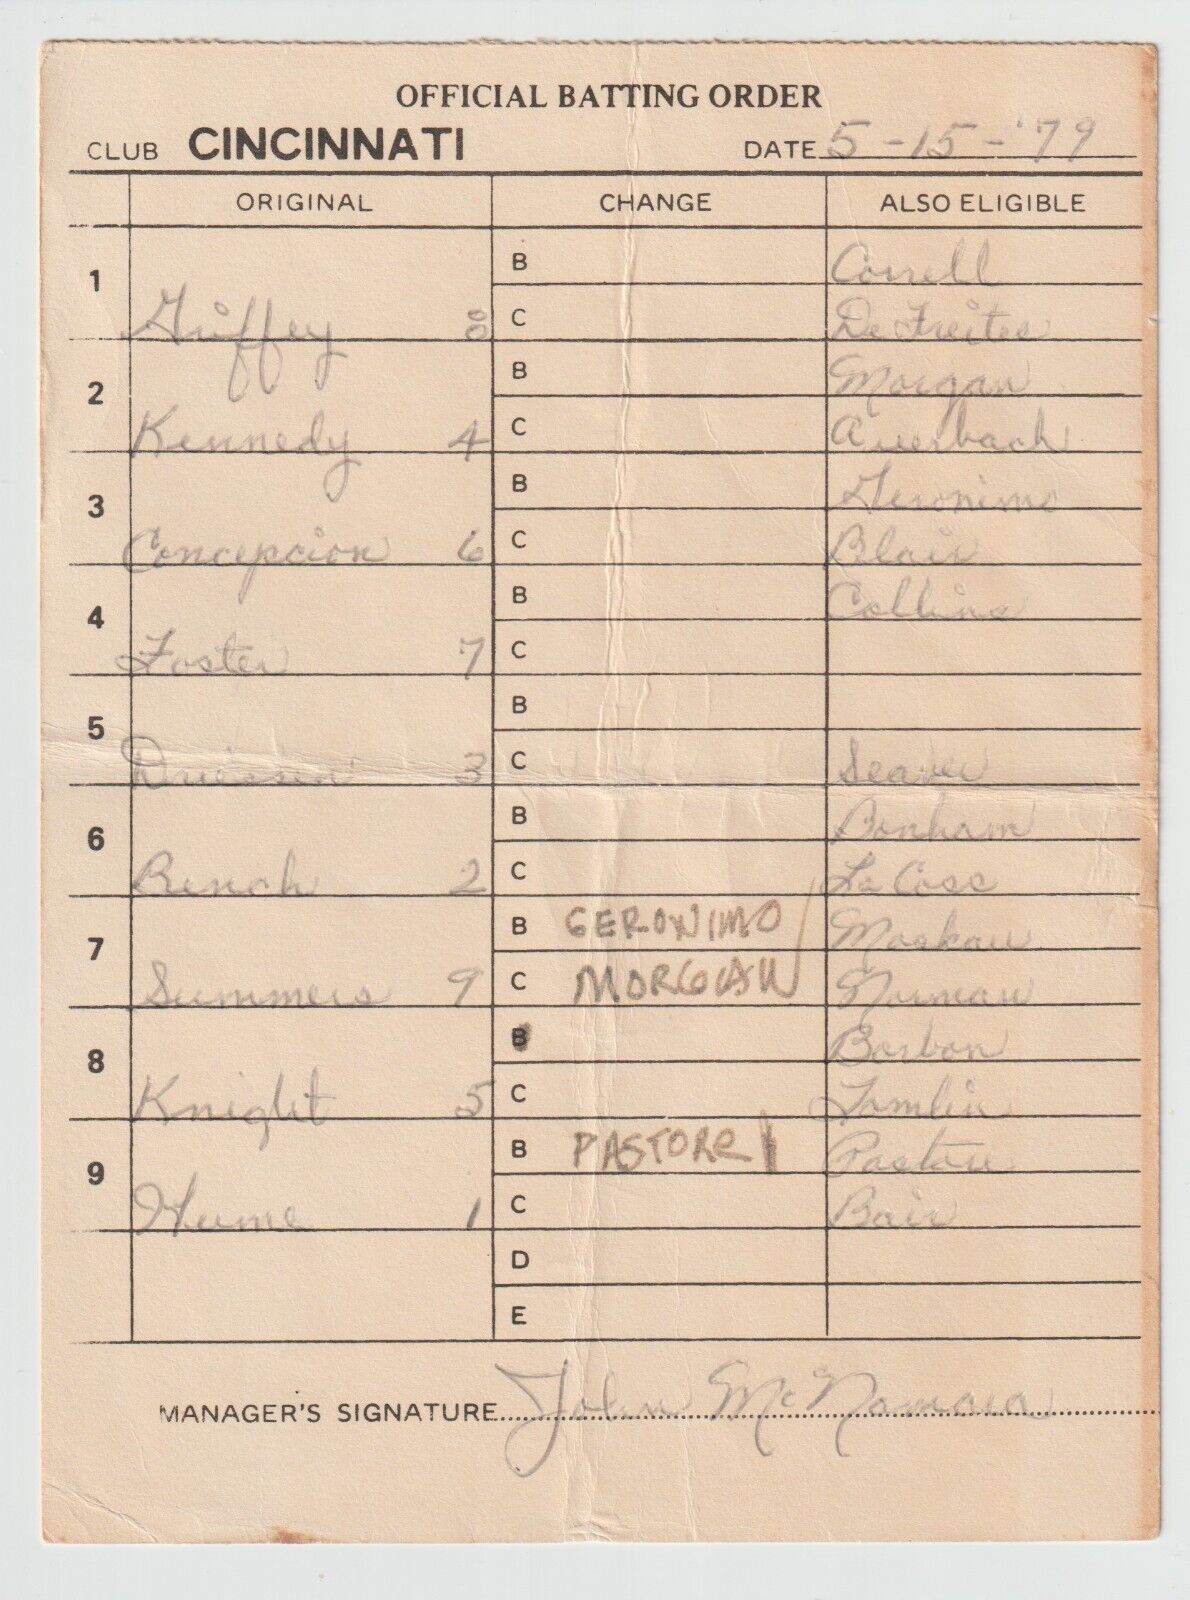 OFFICIAL BATTING ORDER
CLUB CINCINNATI DATE 5-15-'79
ORIGINAL CHANGE ALSO ELIGIBLE
1 Griffey 8 B Correll
C De Freites
2 Kennedy 4 B Morgan
C Auerbach
3 Concepcion 6 B Geronimo
C Blair
4 Foster 7 B Collins
C
5 Driessen 3 B
C Seaver
6 Bench 2 B Bonham
C La Coss
7 Summers 9 B GERONIMO Moskau
C MORGAN Norman
8 Knight 5 B Borbon
C Tomlin
9 Hume 1 B PASTORE Pastore
C Bair
D
E
MANAGER'S SIGNATURE John McNamara